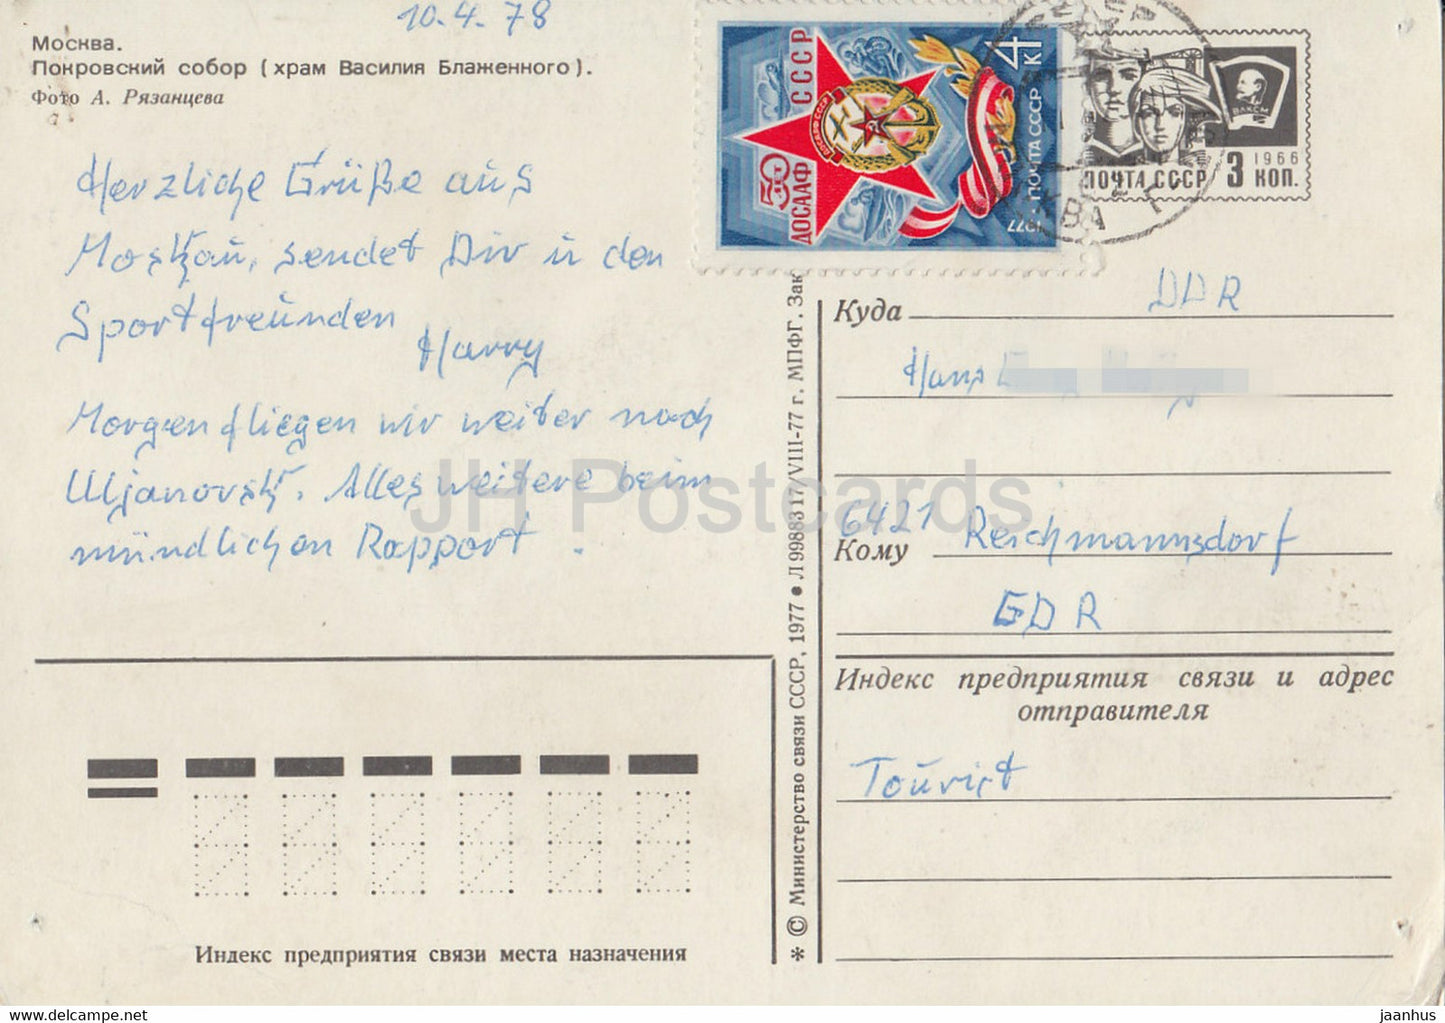 10.4.78
Москва.
Покровский собор (храм Василия Блаженного).
Фото А. Рязанцева
Herzliche Grüße aus
Moskau, sendet Dir u den
Sportfreunden
Harry
Morgen fliegen wir weiter nach
Uljanovsk. Alles weitere beim
mündlichen Rapport.
Индекс предприятия связи места назначения
* © Министерство связи СССР, 1977 • Л 99883 17/VIII-77 г. МПФГ. Зак
50 ДОСААФ СССР
ДОСААФ СССР
1977 • ПОЧТА СССР 4 К
ВЛКСМ
1966
ПОЧТА СССР 3 КОП.
DDR
Куда
Hans
6421 Reichmannsdorf
Кому
GDR
Индекс предприятия связи и адрес
отправителя
Tourist
JH Postcards
jaanhus